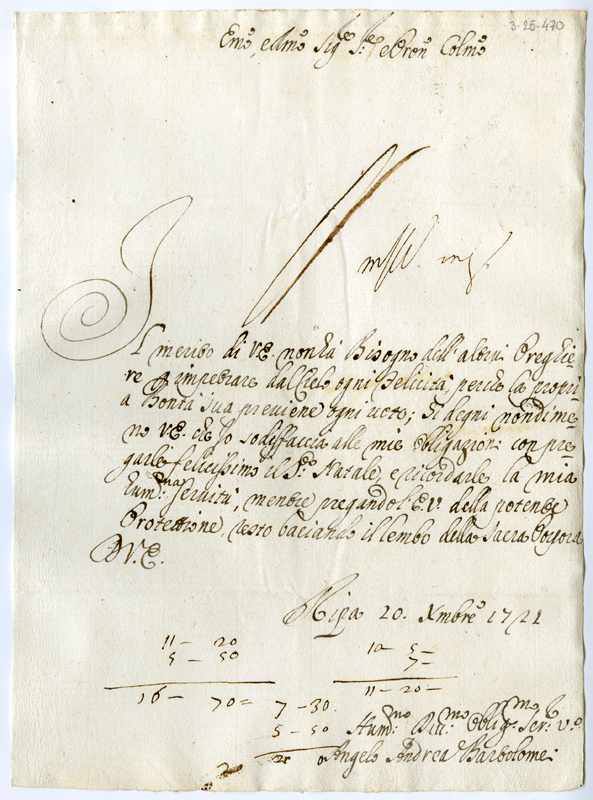 3-25-470
Emo, e Rmo Sigre Sre e Pron Colmo
Il merito di V.E. non hà Bisogno dell'altrui Preghie-
re p impetrare dal Cielo ogni Felicità, perche la propri-
a Bontà sua previene ogni voto; si degni nondime
no V.E. che Io sodisfaccia alle mie obligazioni con pre
garle felicissimo il Sto Natale, e ricordarle la mia
hum:ma servitù, mentre pregandol' E.V. della potente
Protettione, resto baciando il lembo della Sacra Porpora
D V.E.
Ripa 20. Xmbre 1721
11 - 20
5 - 50
16 - 70 =
10 5 -
7 -
11 - 20 -
7 - 30
5 - 50
Hum:mo Div:mo Obligmo Ser: vo
Angelo Andrea Bartolomei